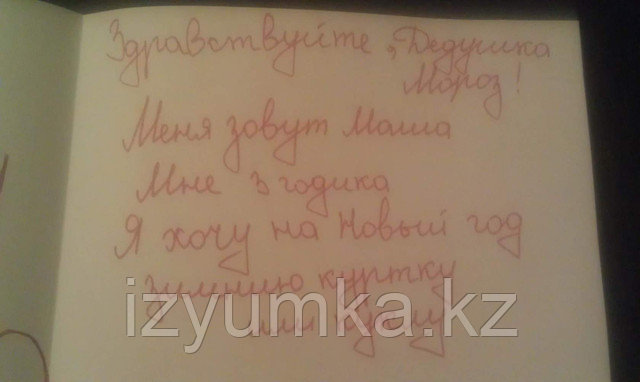 Здравствуйте, Дедушка
Мороз!
Меня зовут Маша
Мне 3 годика
Я хочу на Новый год
зимнюю куртку
izyumka.kz
или